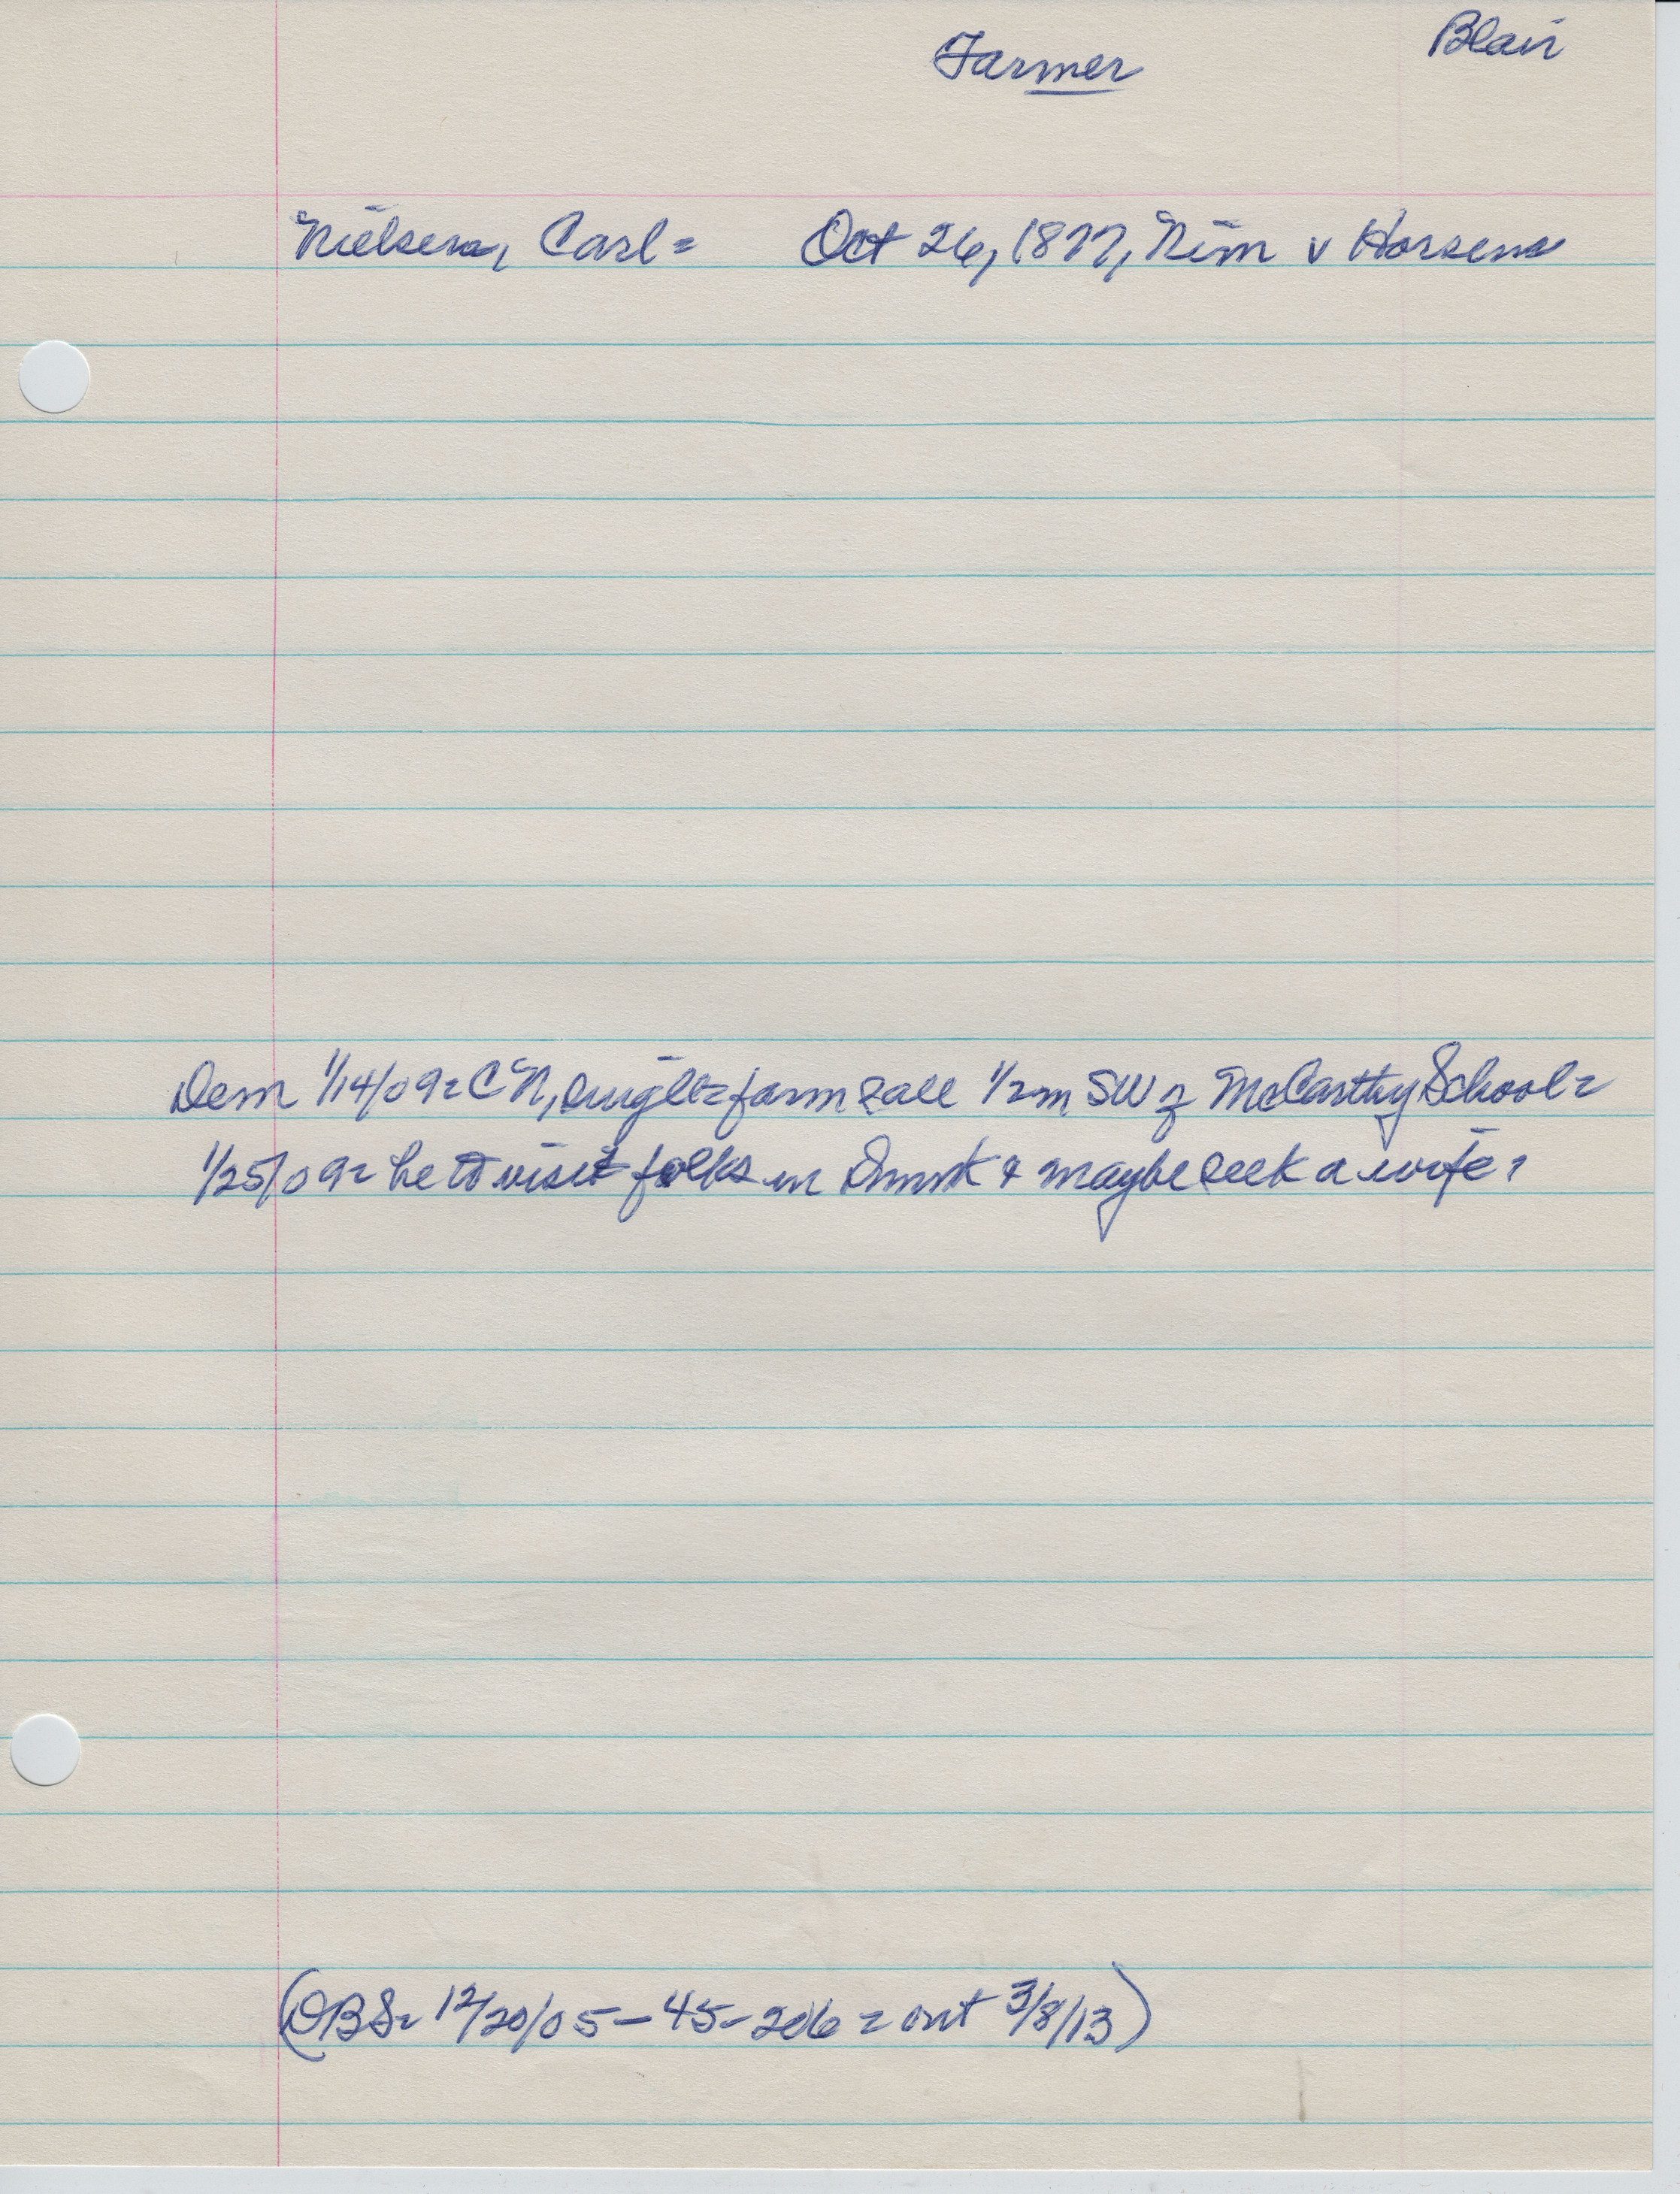 Blair
Farmer
Nielsen, Carl= Oct 26, 1877, Nim v Horsens
Dem 1/14/09= CN, single= farm sale 1/2m SW of McCarthy School=
1/25/09= he to visit folks in Dnmk & maybe seek a wife=
(DBS= 12/20/05-45-206= out 3/8/13)